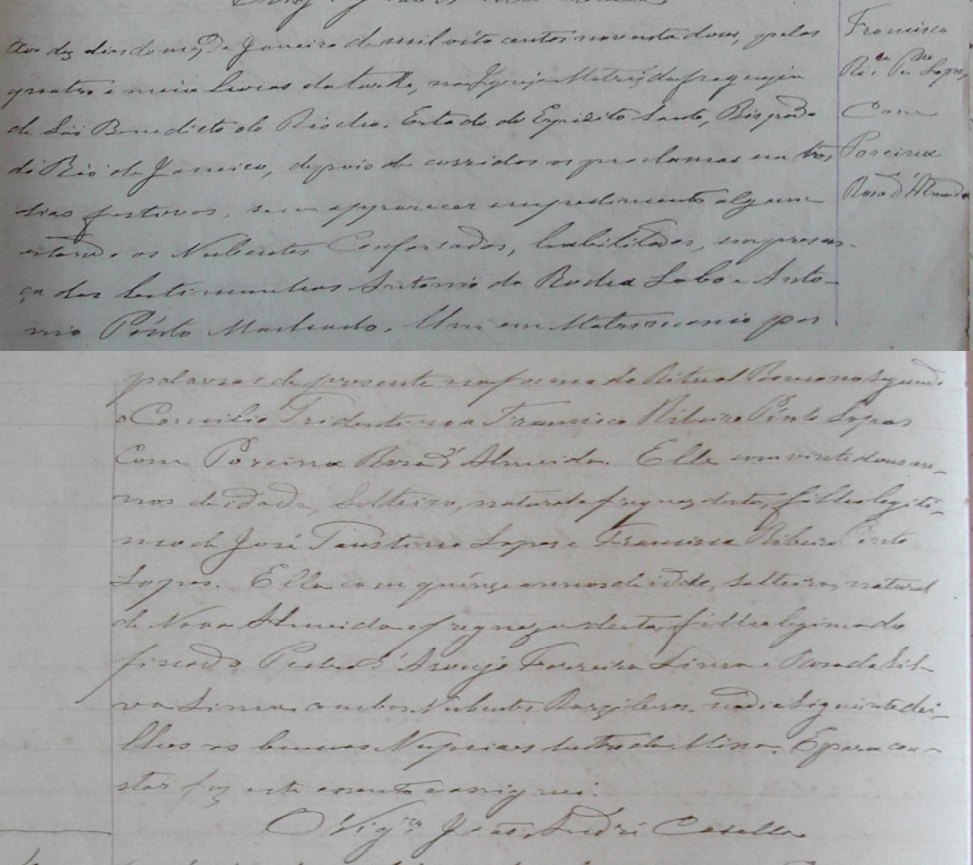 Aos dez dias do mez de Janeiro de mil oito centos noventa dous, pelas
quatro e meia horas da tarde, na Igreja Matriz da freguezia
de São Benedicto do Riacho, Estado do Espirito Santo, Bispado
do Rio de Janeiro, depois de corridos os proclamas em tres
dias festivos, sem apparecer impedimento algum
estando os Nubentes Confessados, habilitados, em presen-
ça das testimunhas Antonio da Rocha Lobo e Anto-
nio Pinto Machado. Uni em Matrimonio por
Francisco
Rib.ro P.to Lopes,
Com
Porcina
Rosa d'Almeida
palavras de presente na forma do Ritual Romano segundo
o Concilio Tridentino a Francisco Ribeiro Pinto Lopes
Com Porcina Rosa d'Almeida. Elle com vinte dous an-
nos de idade, Solteiro, natural e freguez desta, filho legiti-
mo de José Faustino Lopes e Francisca Ribeiro Pinto
Lopes. Ella com quinze annos de idade, solteira, natural
de Nova Almeida e fregueza desta, filha legima do
finado Pedro d'Araujo Ferreira Lima e Rosa da Sil-
va Lima, ambos Nubentes Brazileiros. no dia Siguinte dei-
lhes as bençoes Nupciaes dentro da Missa. E para con-
star fiz este assento e assignei.
O Vig.ro João André Casella